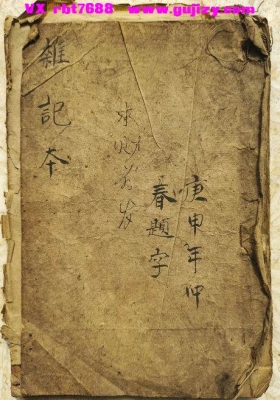 VX rbt7688 www.gujizy.com
庚申年仲
春題字
雜記本